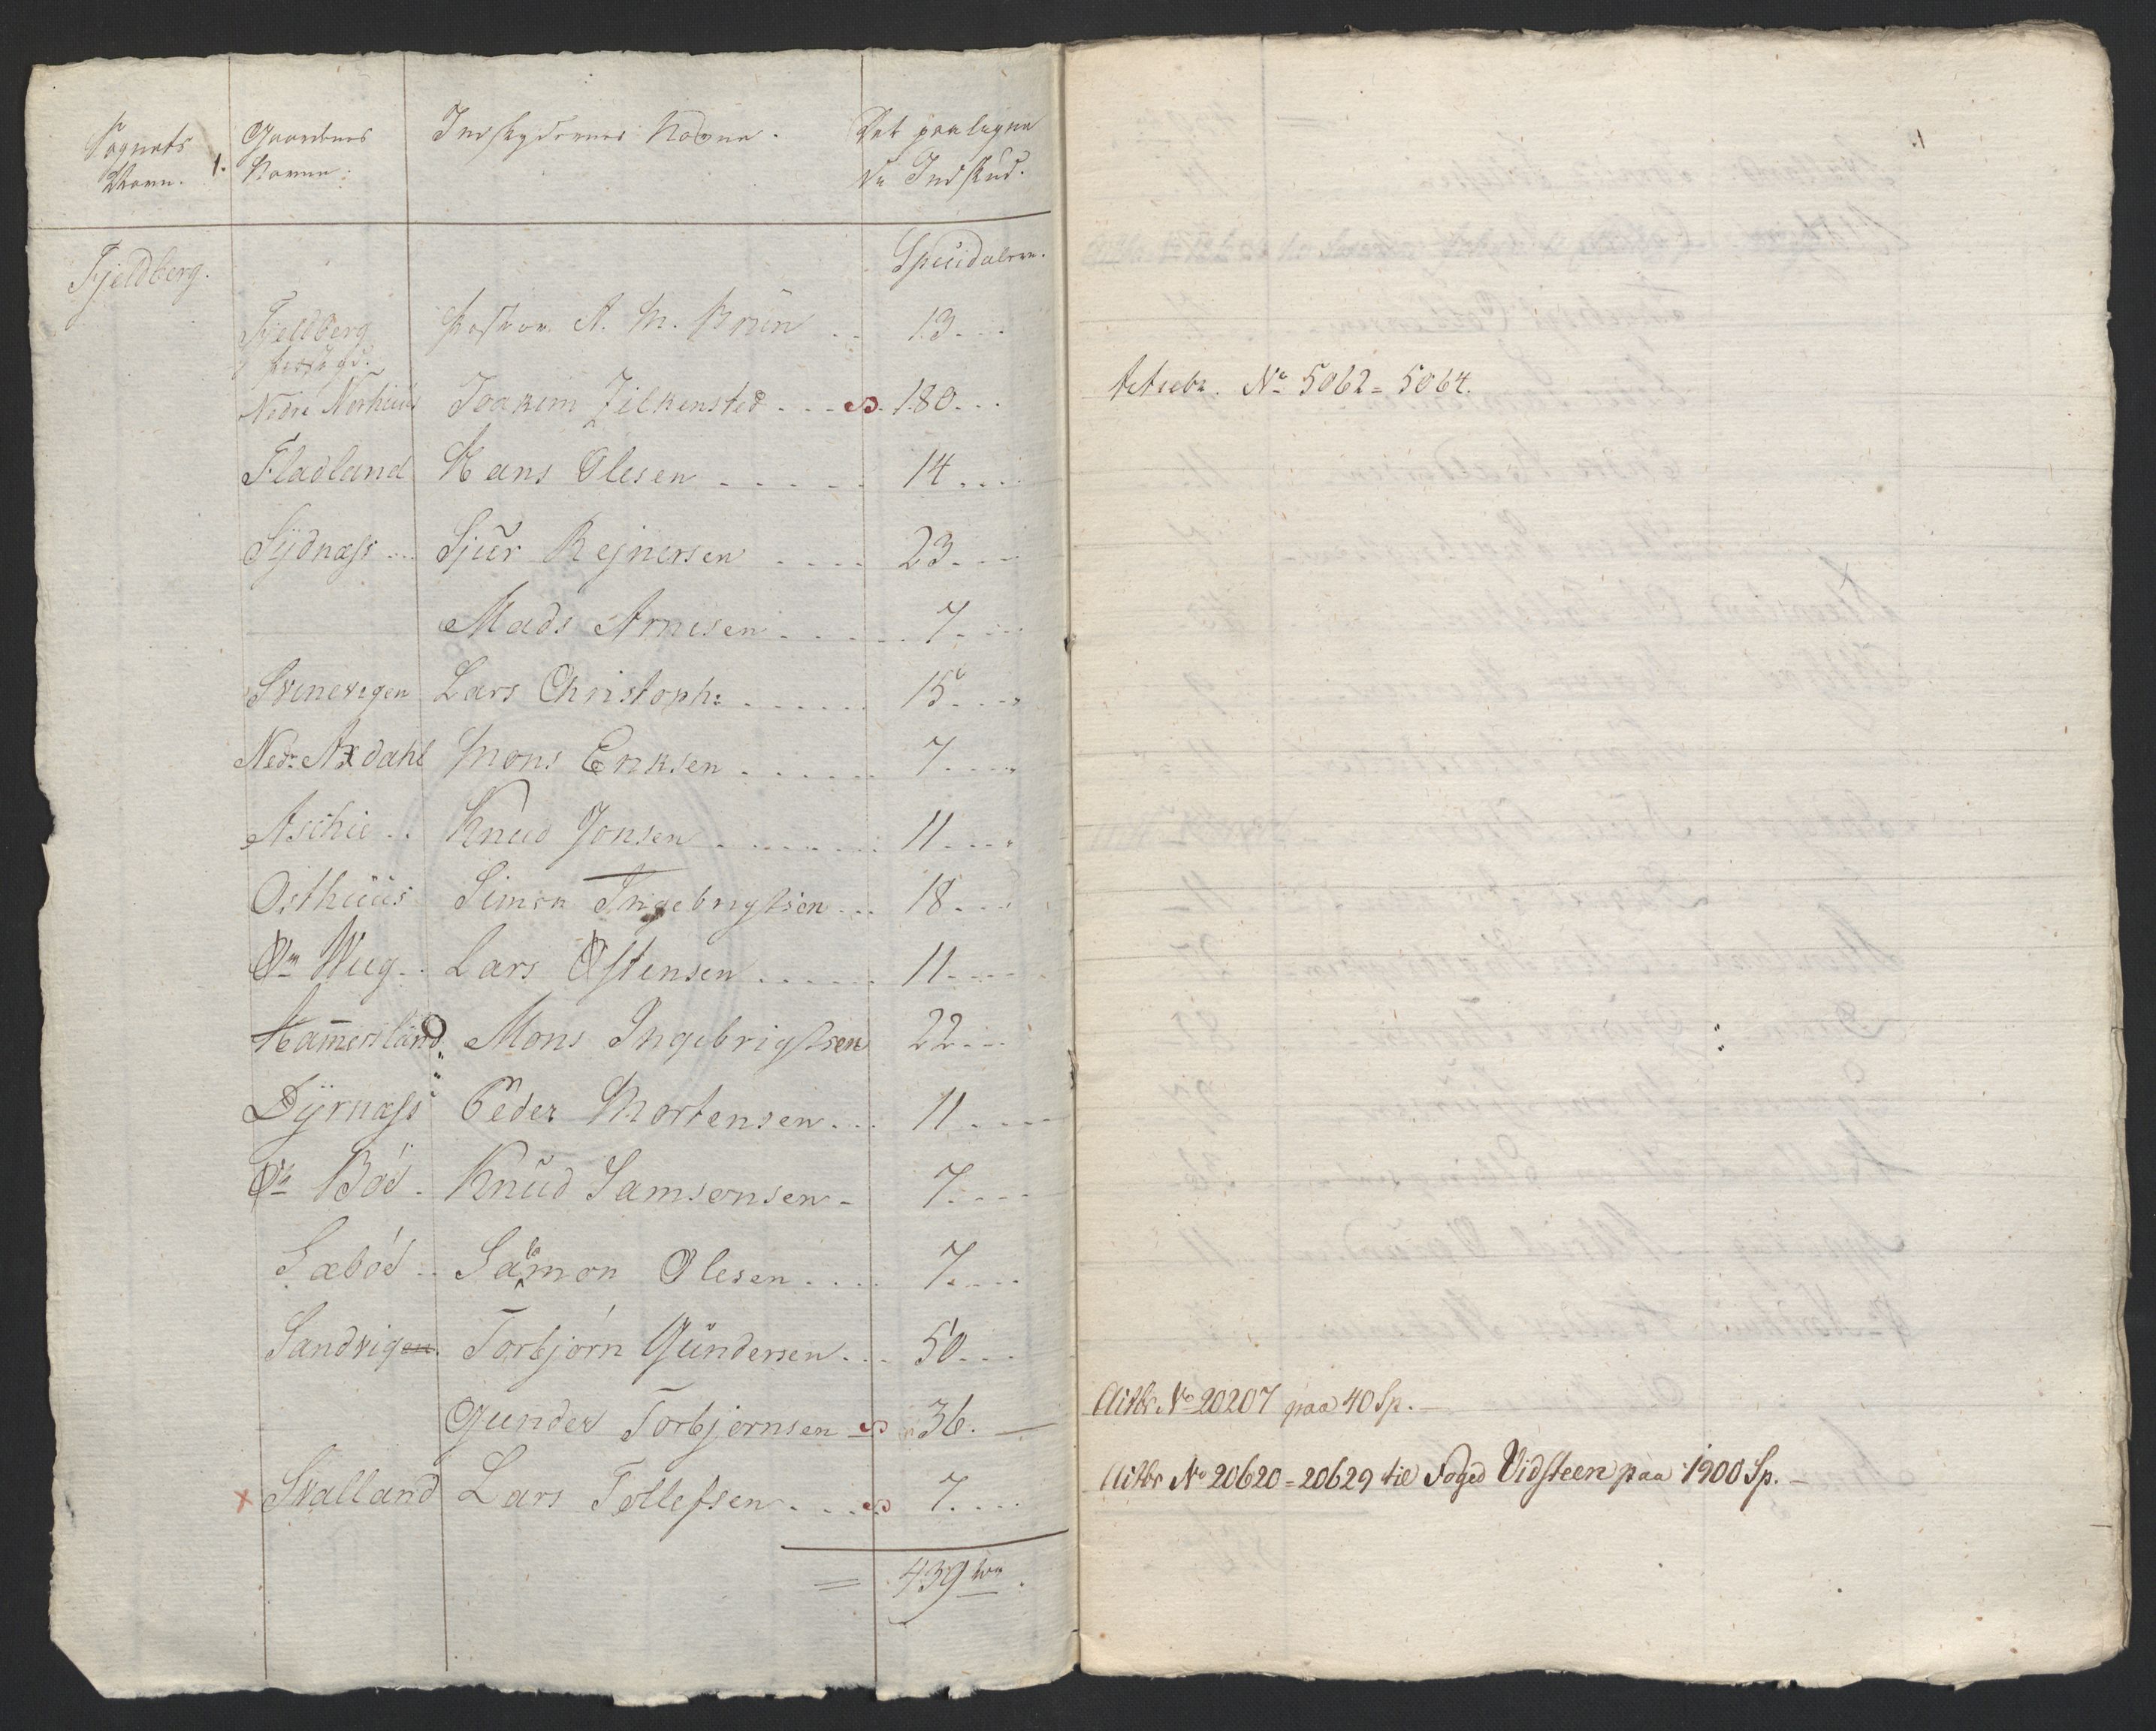 Sognets Gaardenes Indskydernes Navne. Det paalagne
Navn. 1. Navne. Indskud.
Fjeldberg. Speciedaler.
Fjeldberg A. M. Brün .. 13...
Nedre Norhuus Joakim Zilkensted ... 180...
Fladland Hans Olesen ..... 14....
Sÿdnæss ... Sjur Rejnersen .... 23...
Mads Arnesen ..... 7...
Svinevigen Lars Christoph: ...... 15....
Nedr. Axdahl Mons Eriksen ...... 7....
Aschie .. Knud Jonsen ....... 11....
Østhuus Simon Ingebrigtsen ... 18...
Lars Østensen ...... 11....
Ham̄ersland Mons Ingebrigtsen 22...
Dÿrnæss Peder Mortensen ... 11....
Böe - Knud Samsonsen - 7....
Sæböe .. Salamon Olesen .... 7....
Sandvigen. Torbjörn Gundersen ... 50...
Gunder Torbjørnsen 36. —
x Skalland Lars Tollefsen .... 7....
= 439
1.
No 5062 = 5064.
No 20207 paa 40 Sp. —
No 20620 = 20629 til Foged Vidsteen paa 1900 Sp. —